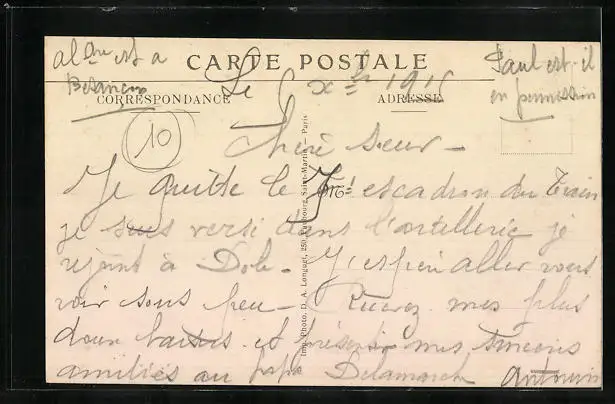 est a
CARTE POSTALE
Paul est-il
Besançon
Le 6 X
CORRESPONDANCE
ADRESSE
en permission
10
Chère sœur -
Je quitte le escadron du Train
je suis versé dans l'artillerie je
rejoint à Dole - J'espère aller vous
voir sous peu - Recevez mes plus
doux baisers et présente mes sincères
amitiés au papa Delamarch
Imp. Photo. D. A. Longuet, 250, Faubourg Saint-Martin — Paris